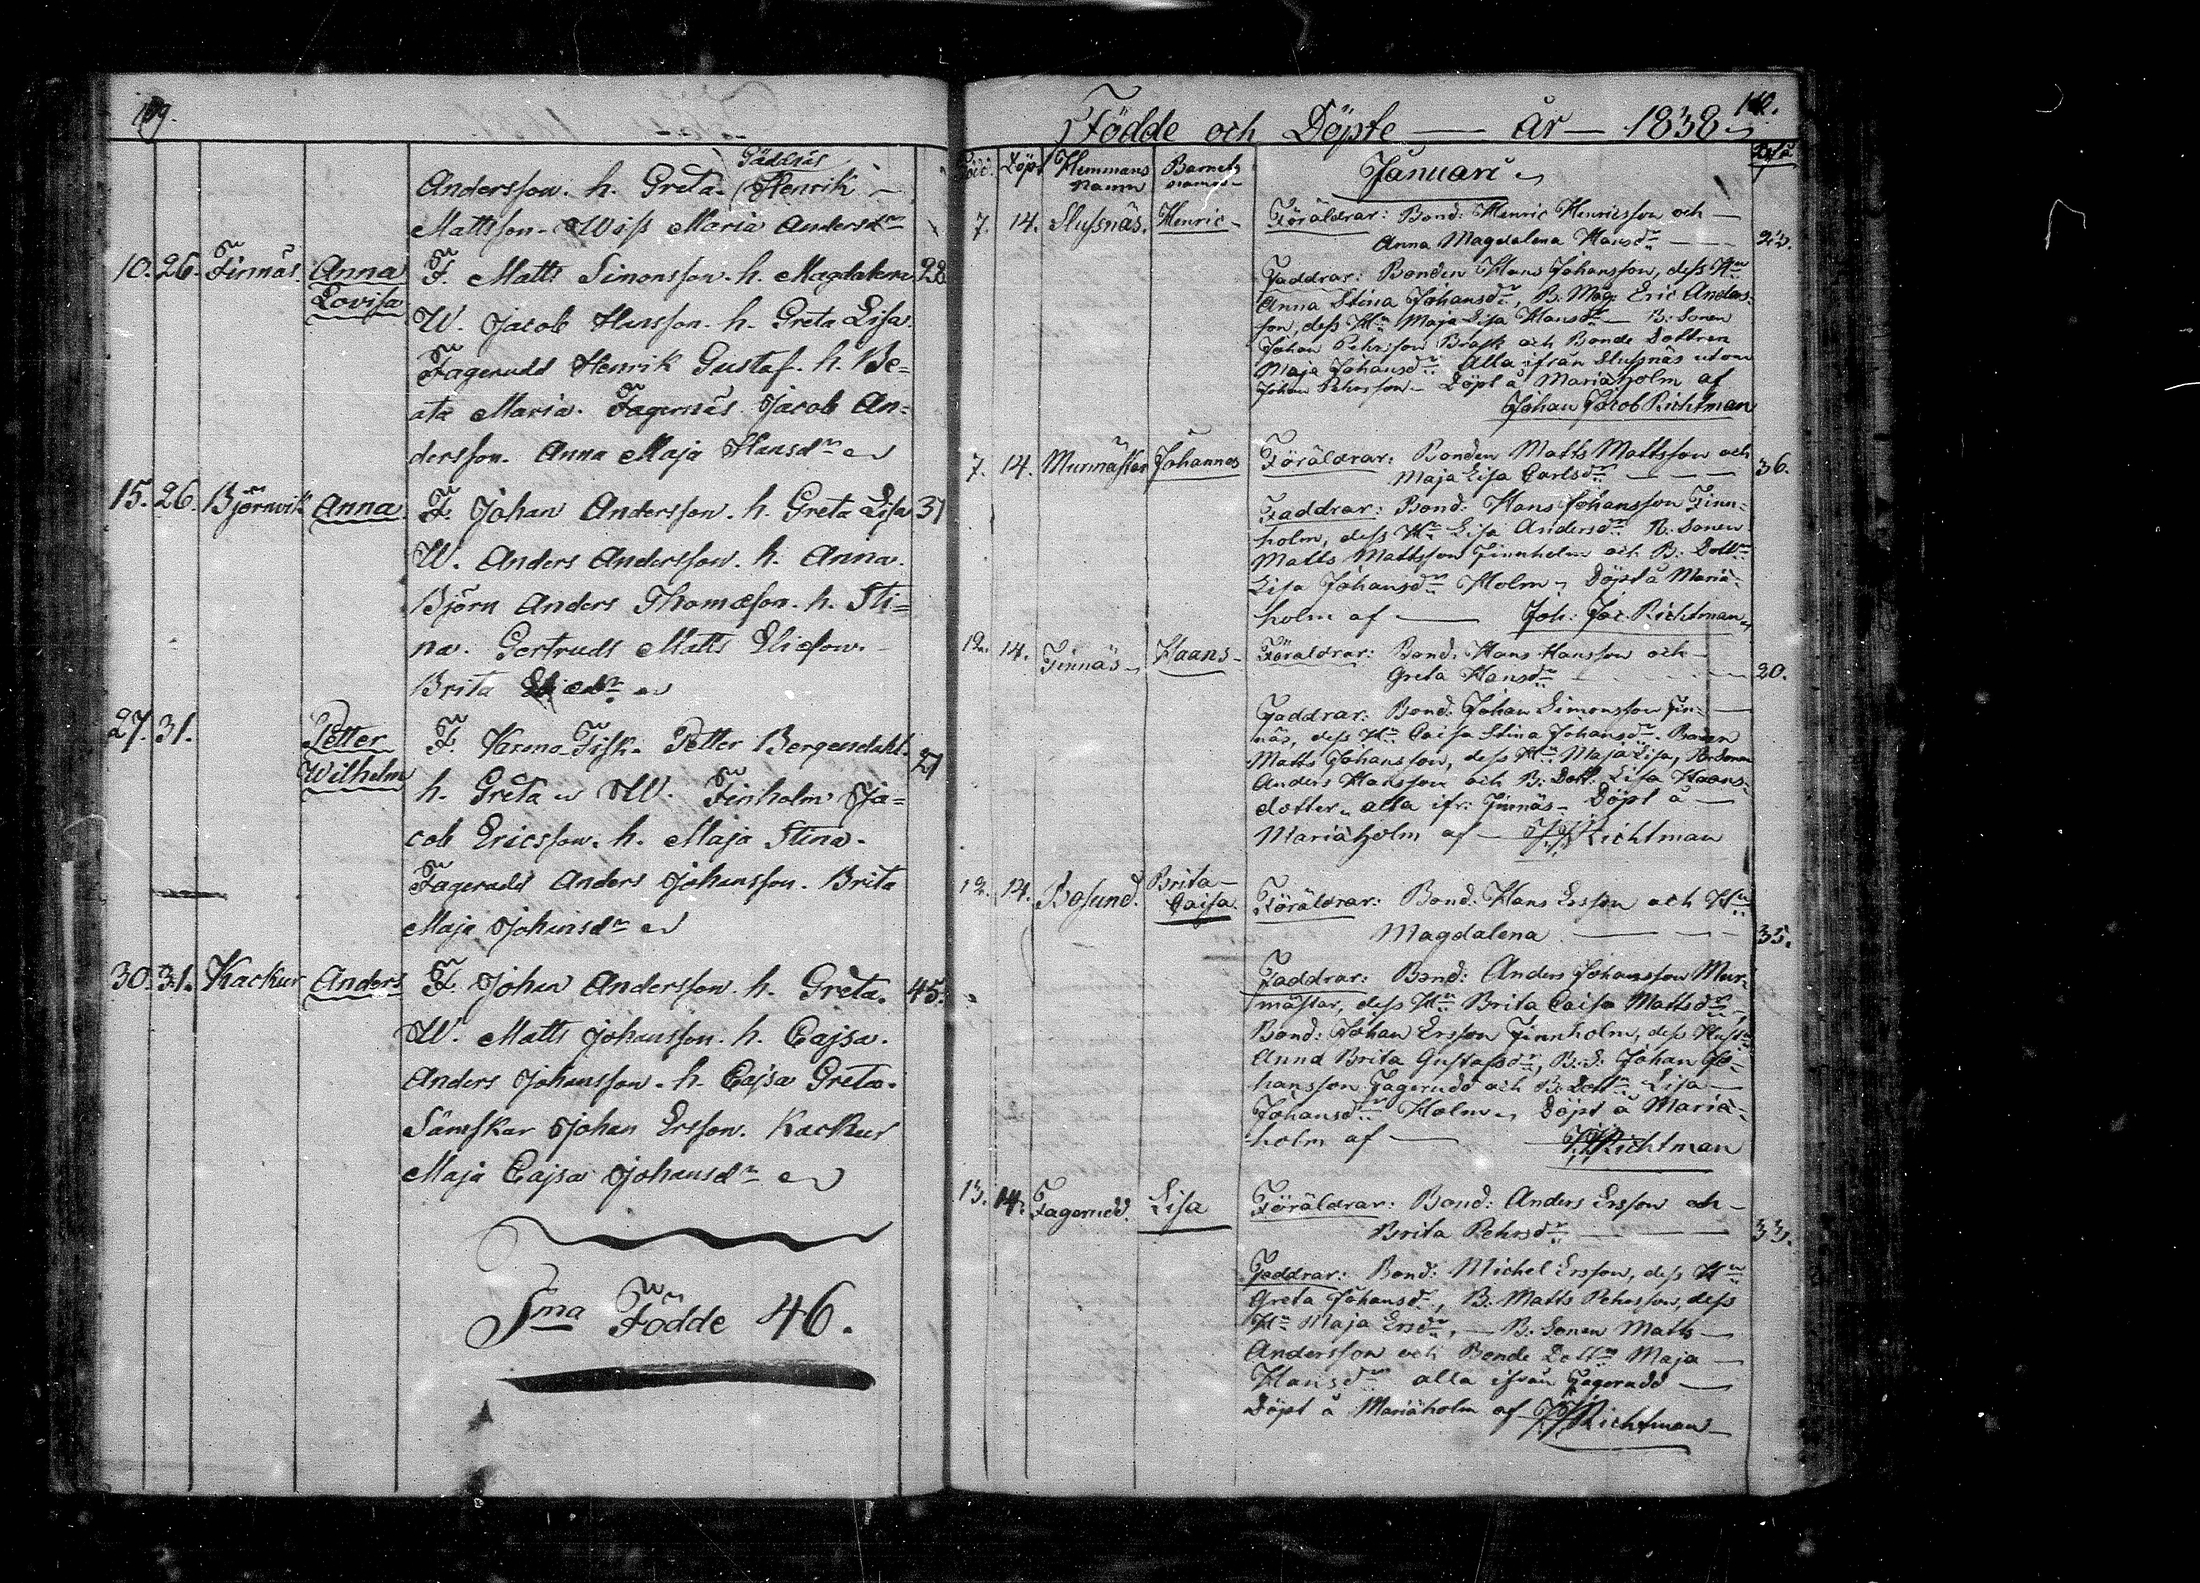 109.
Gäddnäs
Andersson. h. Greta. Henrik
Mattsson. Wiss Maria Andersdr
10. 26. Finnäs. Anna F. Matts Simonsson. h. Magdalena 28
Lovisa W. Jacob Hansson. h. Greta Lisa
Fagerudd Henrik Gustaf. h. Be=
ata Maria. Fagernäs Jacob An=
dersson. Anna Maja Hansdr
15. 26. Björnvik Anna F. Johan Andersson. h. Greta Lisa 31
W. Anders Andersson. h. Anna.
Björn Anders Thomæson. h. Sti=
na. Gertruds Matts Eliæson.
Brita
27. 31. Petter F. Karono Fisk. Petter Bergendahl. 21
Wilhelm h. Greta W. Finholm Ja=
cob Ericsson. h. Maja Stina.
Fagerudd Anders Johansson. Brita
Maja Johansdr
30. 31. Kackur Anders F. Johan Andersson. h. Greta. 45.
W. Matts Johansson. h. Cajsa.
Anders Johansson. h. Cajsa Greta.
Sämskar Johan Ersson. Kackur
Maja Cajsa Johansdr
Sma Födde 46.
110.
Födde och Döpte — år — 1838
Född. Döpt Hemmans namn Barnets namn Januari
7. 14. Slussnäs. Henric Föräldrar: Bond: Henric Henricsson och
Anna Magdalena Hansdr
Faddrar: Bonden Hans Johansson, dess Hu
Anna Stina Johansdr, B: Måg: Eric Anders-
son, dess Hu Maja Lisa Hansdr — B: Sonen
Johan Pehrsson Brask och Bonde Dottren
Maja Johansdr Alla ifrån Slussnäs utom
Johan Pehrsson — Döpt å Mariæholm af
Johan Jacob Richtman
7. 14. Murmästar Johannes Föräldrar: Bonden Matts Mattsson och
Maja Lisa Carlsdr 36.
Faddrar: Bond: Hans Johansson Finn-
holm, dess Hu Lisa Andersdr B: Sonen
Matts Mattsson Finnholm och B: Dottn
Lisa Johansdr Holm. Döpt å Mariæ-
holm af — Joh: Jac: Richtman
12. 14. Finnäs Haans Föräldrar: Bond: Hans Hansson och
Greta Hansdr 20.
Faddrar: Bond: Johan Simonsson Fin-
näs, dess Hu Caisa Stina Johansdr. Bonden
Matts Johansson, dess Hu Maja Lisa, B: Sonen
Anders Hansson och B: Dott: Lisa Haans-
dotter, alla ifr: Finnäs — Döpt å
Mariæholm af — J: J: Richtman
12. 14. Bosund. Brita Caisa Föräldrar: Bond: Hans Ersson och Hu
Magdalena 35.
Faddrar: Bond: Anders Johansson Mur-
mästar, dess Hu Brita Caisa Mattsdr,
Bond: Johan Ersson Finnholm, dess Hust
Anna Brita Gustafsdr, B: S: Johan Jo-
hansson Fagerudd och B: Dottn Lisa
Johansdr Holm. Döpt å Mariæ-
holm af — J: J: Richtman
13. 14. Fagerudd. Lisa Föräldrar: Bond: Anders Ersson och
Brita Pehrsdr 33.
Faddrar: Bond: Michel Ersson, dess Hu
Greta Johansdr, B: Matts Pehrsson, dess
Hu Maja Ersdr, — B: Sonen Matts
Andersson och Bonde Dottn Maja
Hansdr alla ifrån Fagerudd
Döpt å Mariæholm af J: J: Richtman